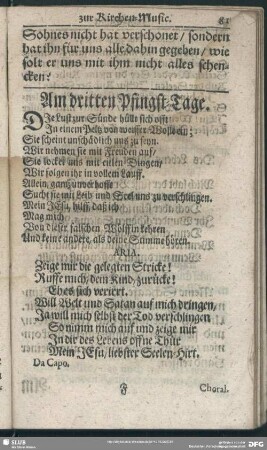 zur Kirchen-Music. 81
Sohnes nicht hat verschonet / sondern
hat ihn für uns alle dahin gegeben / wie
solt er uns mit ihm nicht alles schen-
cken?
Am dritten Pfingst-Tage.
Die Lust zur Sünde hüllt sich offt
In einem Peltz von weisser Wolle ein;
Sie scheint unschädlich uns zu seyn.
Wir nehmen sie mit Freuden auf/
Sie locket uns mit eitlen Dingen/
Wir folgen ihr in vollem Lauff.
Allein, gantz unverhofft
Sucht sie mit Leib und Seel uns zu verschlingen.
Mein JEsu, hilff, daß ich
Mag mich
Von dieser falschen Wölffin kehren
Und keine andere, als deine Stimme hören.
ARIA.
Zeige mir die gelegten Stricke!
Ruffe mich, dein Kind, zurücke!
Eh es sich verirrt.
Will Welt und Satan auf mich dringen,
Ja will mich selbst der Tod verschlingen
So nimm mich auf und zeige mir
In dir des Lebens offne Thür
Mein JEsu, liebster Seelen-Hirt.
Da Capo.
F Choral.
SLUB
DFG